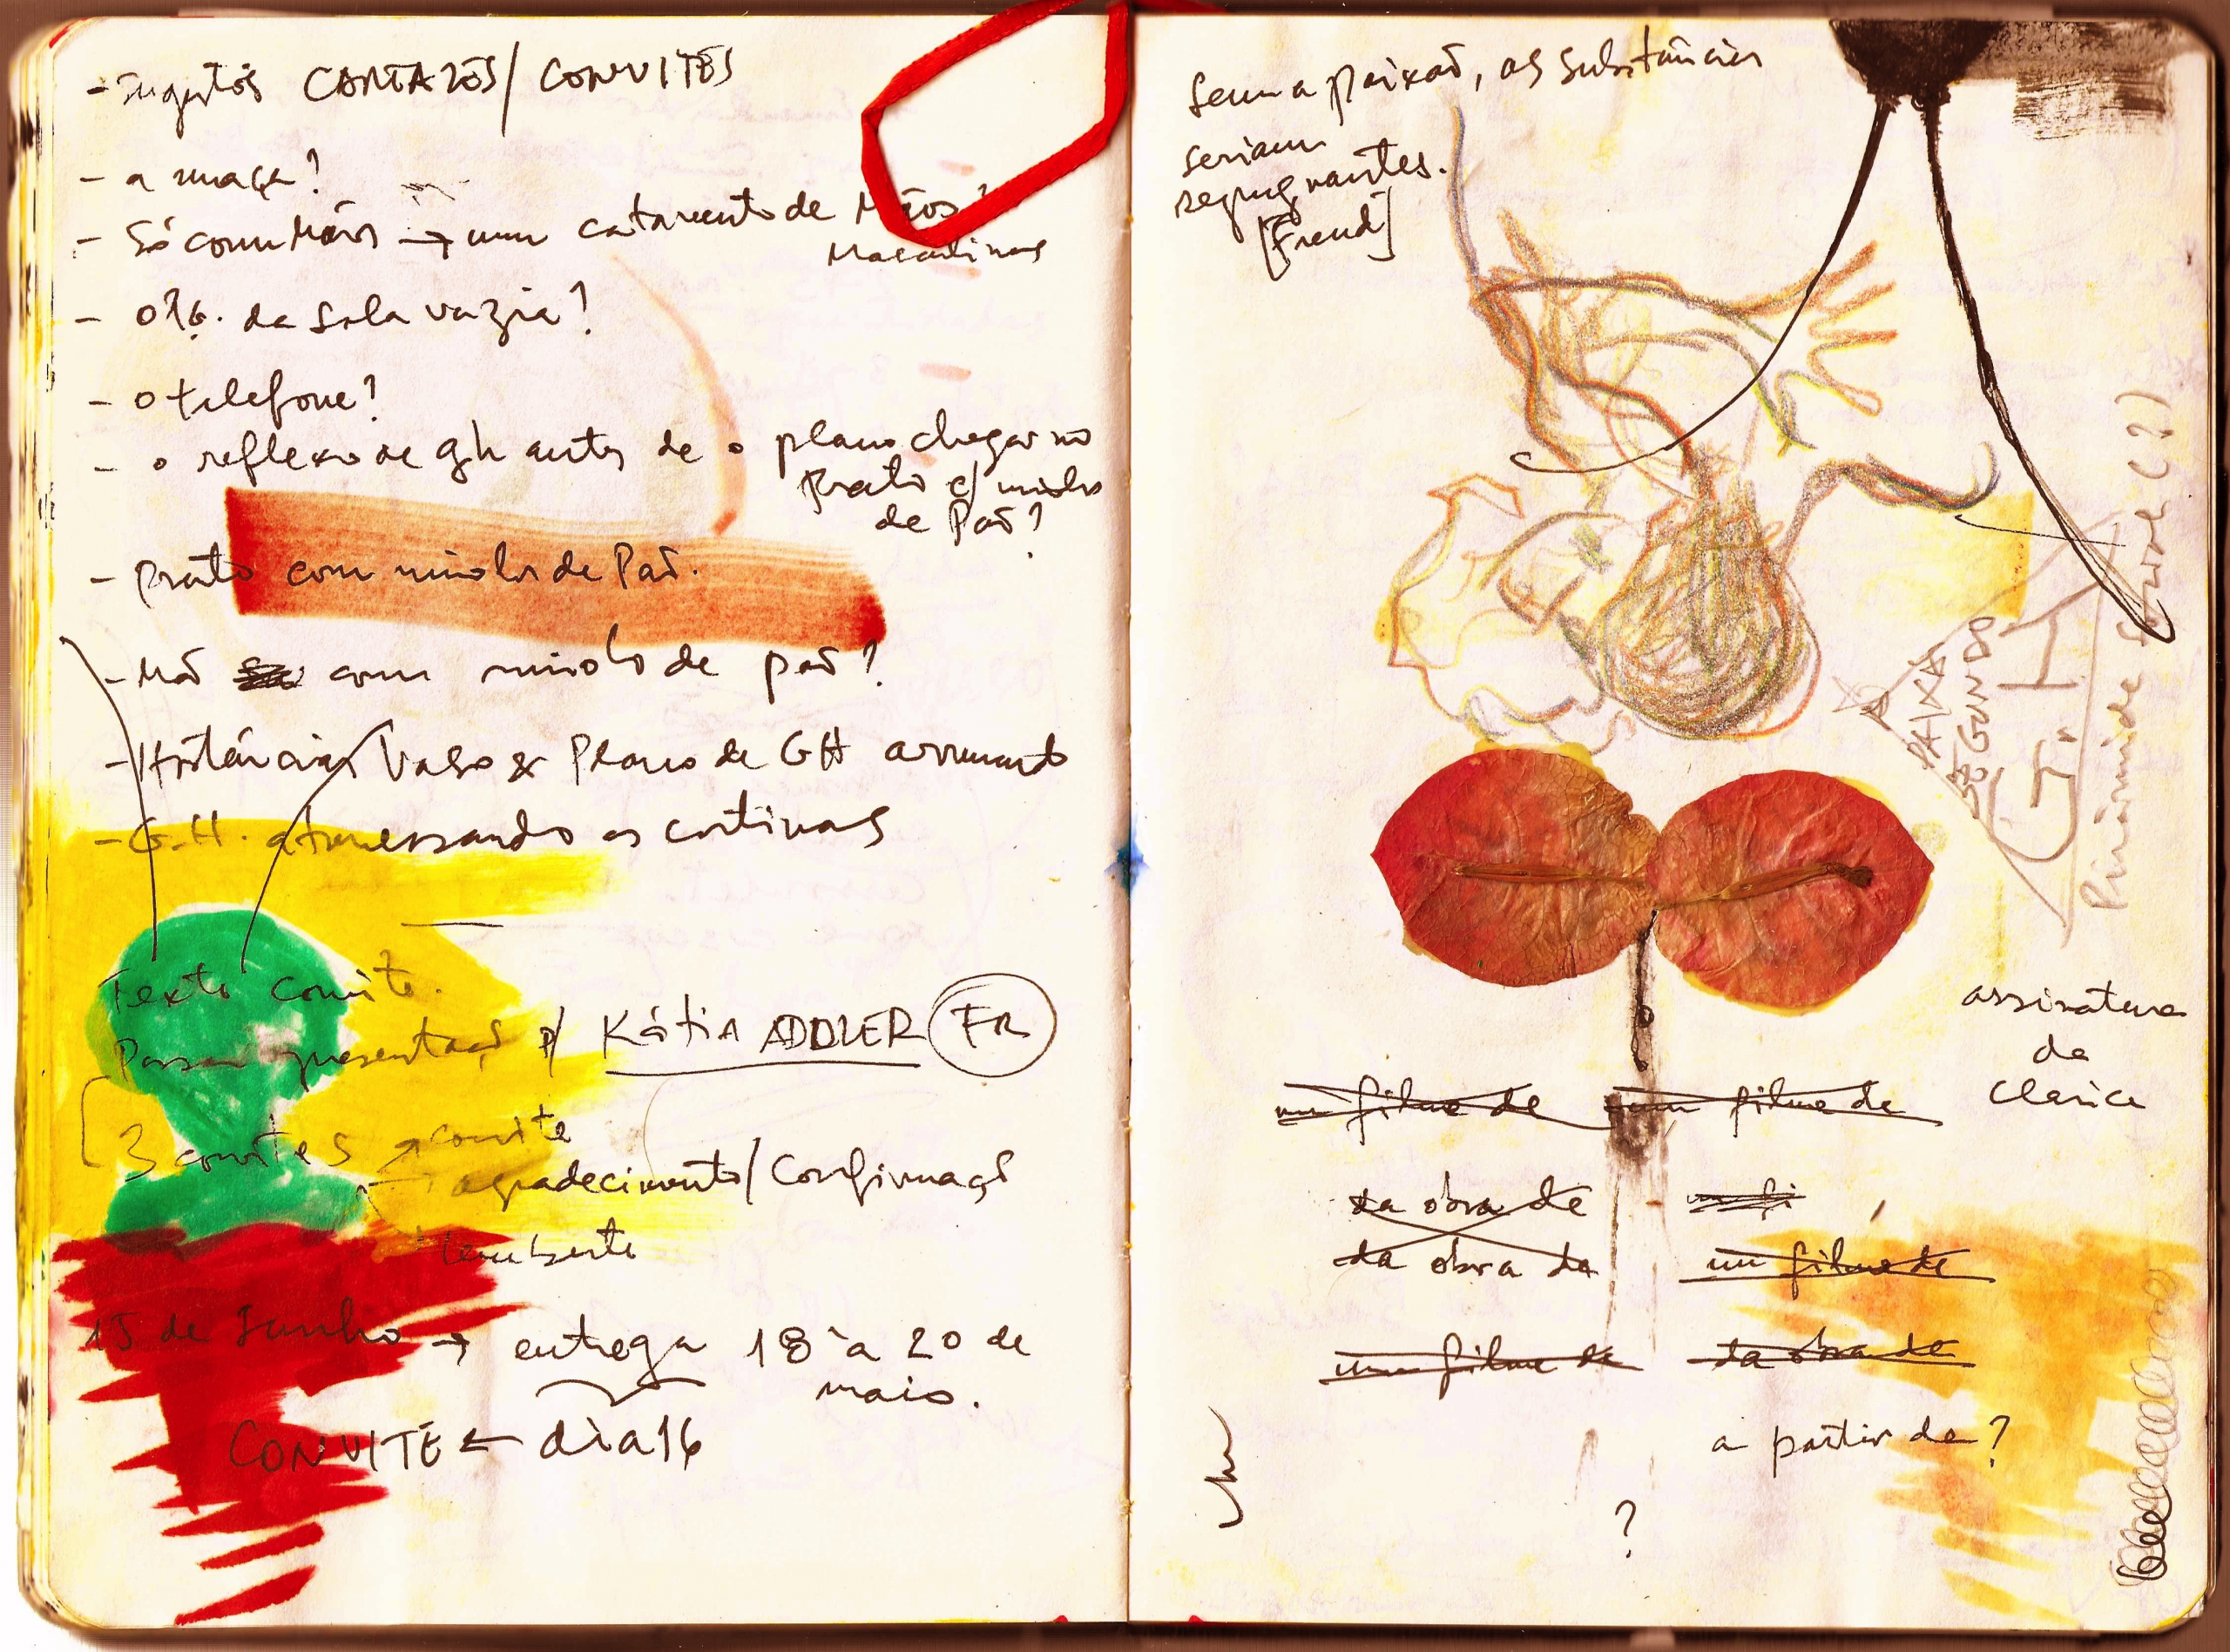 - Sugestões CARTAZES/CONVITES
- a maçã?
- Só com Mãos → um catavento de Mãos?
Masculinas
- da sala vazia?
- o telefone?
- o reflexo de gh antes de o plano chegar no
Prato c/ miolo
de Pão?
- Prato com miolos de Pão.
- Mão com miolo de pão?
- Hortências Vaso & Plano de GH arrumando
- G.H. atravessando as cortinas
Texto convite.
Passar apresentação p/ Kátia ADDLER FR
3 convites → convite
→ agradecimento/Confirmação
lembrete
15 de Junho → entrega 18 à 20 de
maio.
CONVITE ← dia 16
Sem a paixão, as substâncias
seriam
repugnantes.
[Freud]
A PAIXÃO
SEGUNDO
G.H
Pirâmide
(?)
assinatura
da
Clarice
um filme de um filme de
da obra de
da obra da um filme de
um filme de da obra de
a partir de?
?